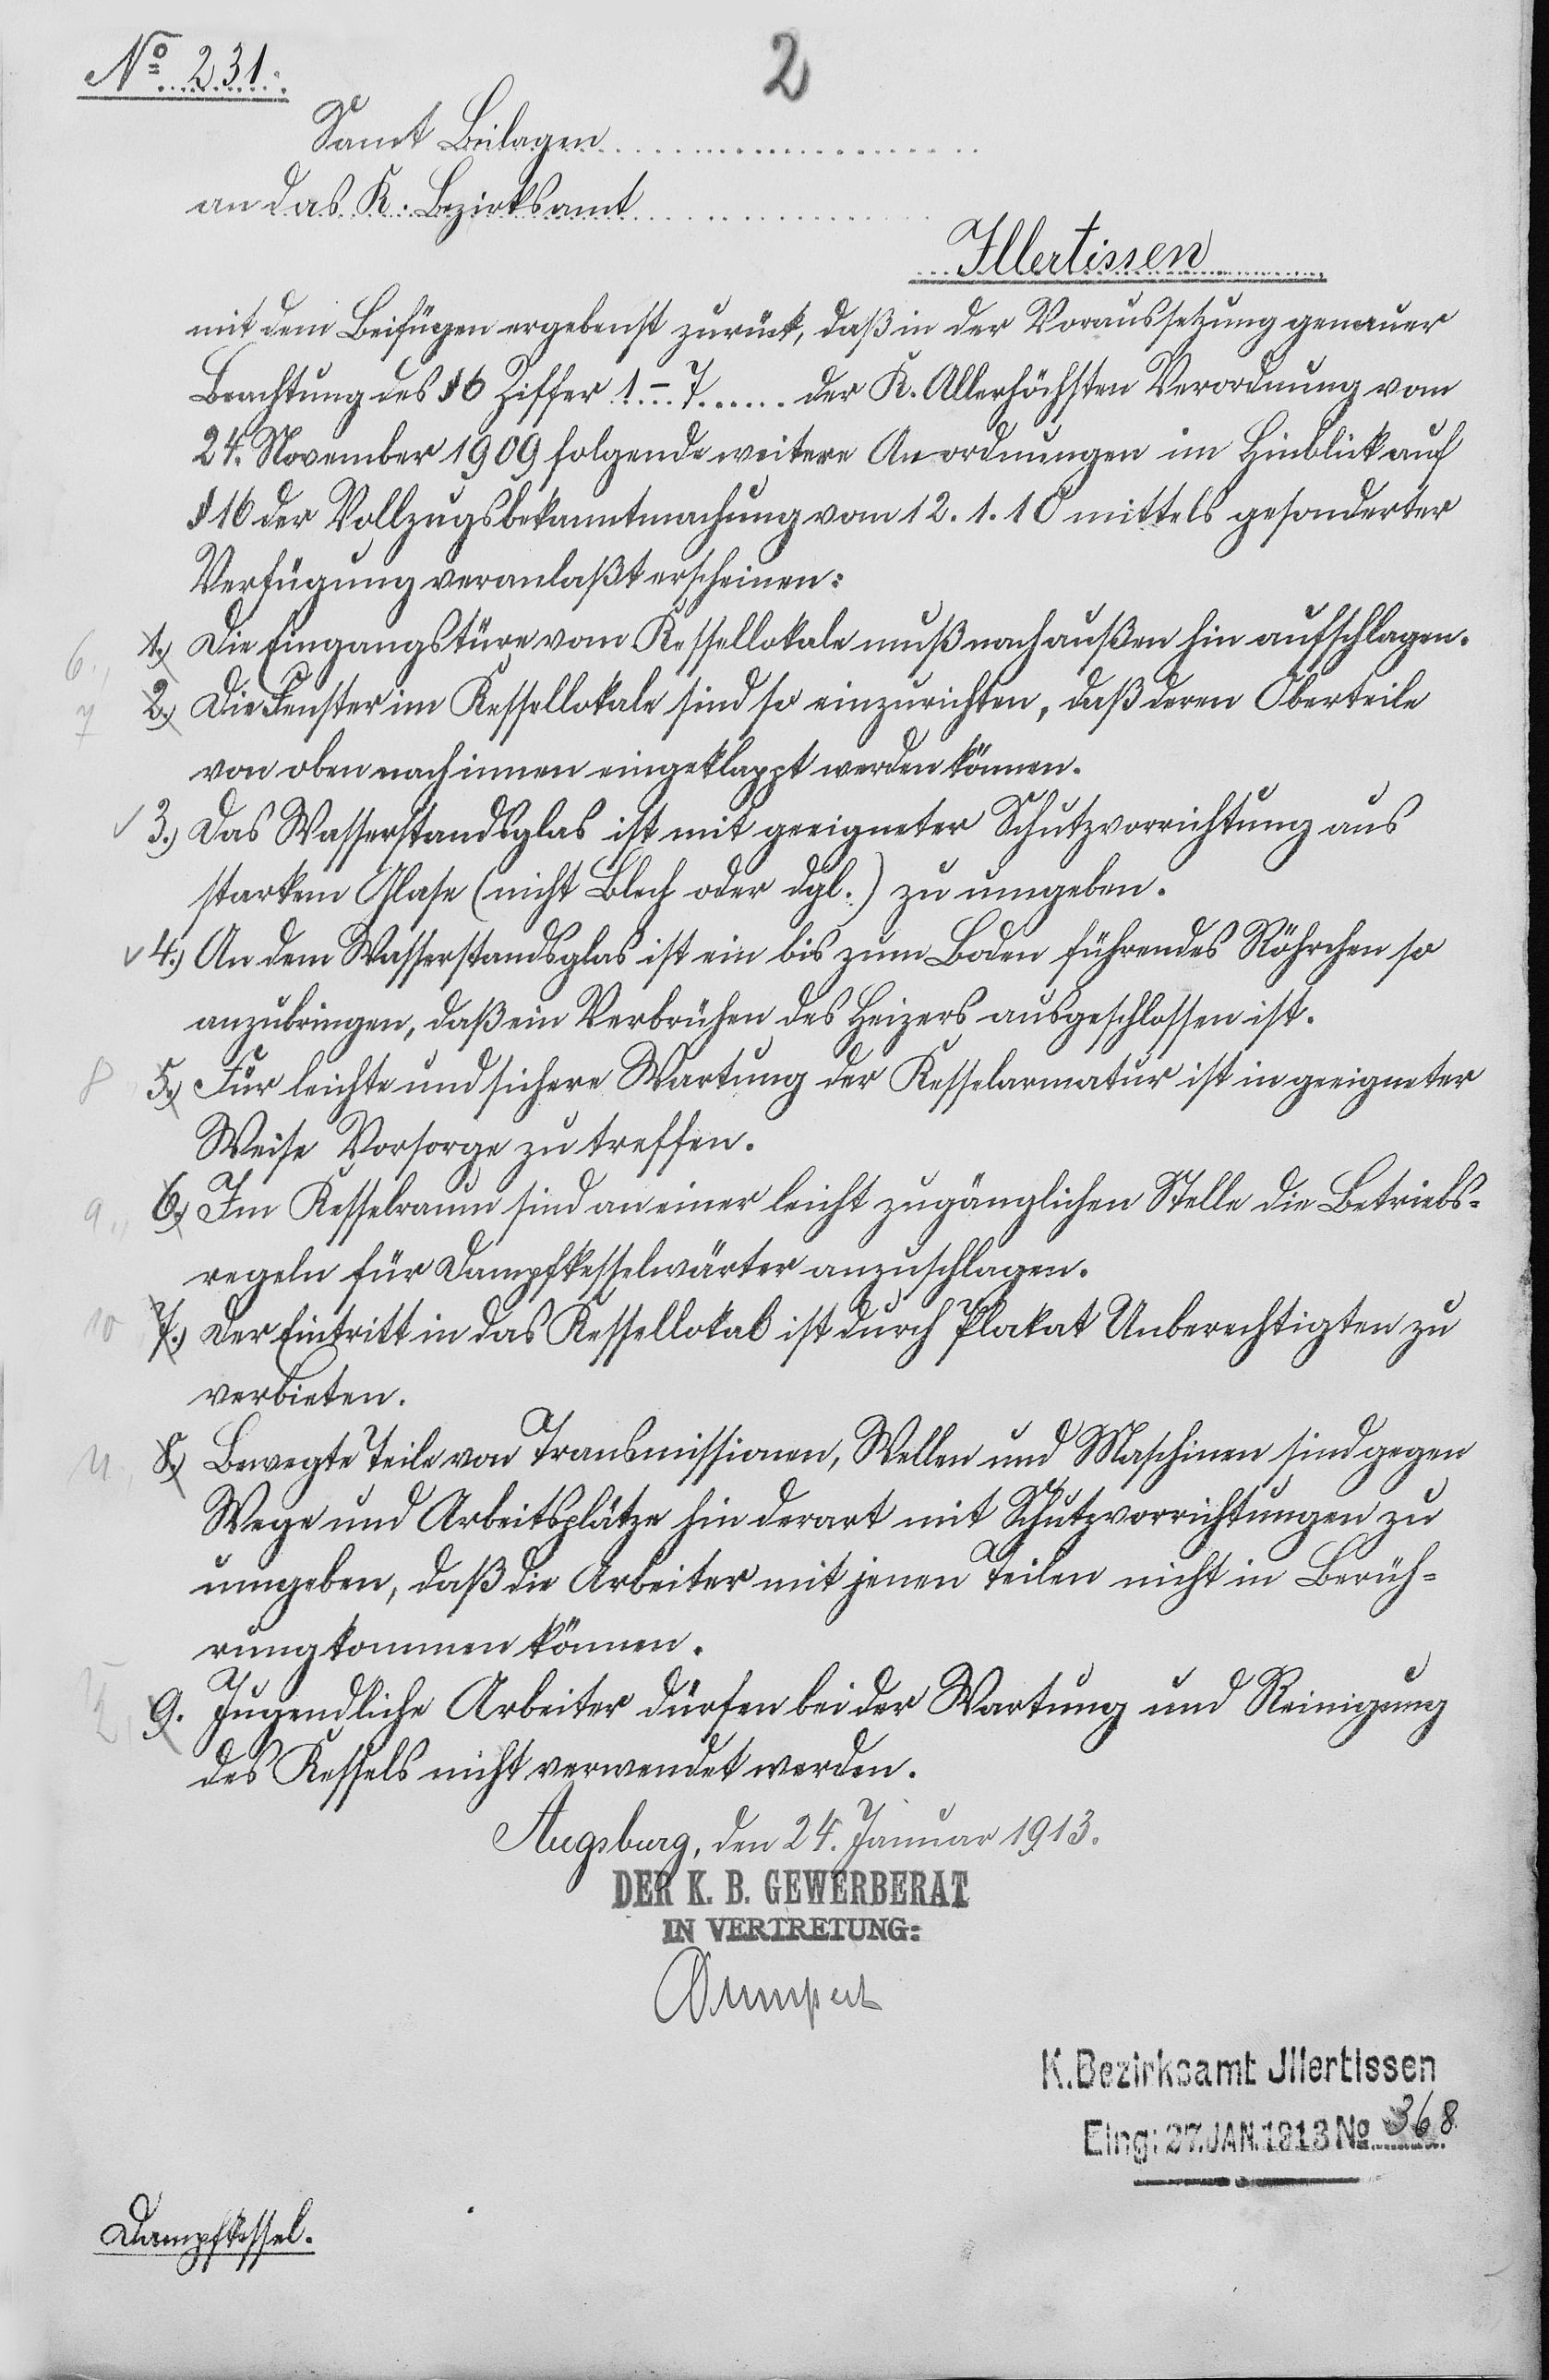 No 231.
2
Samt Beilagen
an das K. Bezirksamt
Illertissen
mit dem Beifügen ergebenst zurück, daß in der Voraussetzung genauer
Beachtung des § 6 Ziffer 1 - 7 der K. Allerhöchsten Verordnung vom
24. November 1909 folgende weitere Anordnungen im Hinblick auf
§ 16 der Vollzugsbekanntmachung vom 12. 1. 10 mittels gesonderter
Verfügung veranlaßt erscheinen:
6., 1.) Die Eingangstüre vom Kessellokale muß nach außen hin aufschlagen.
7 2.) Die Fenster im Kessellokale sind so einzurichten, daß deren Oberteile
von oben nach innen eingeklappt werden können.
✓ 3.) Das Wasserstandsglas ist mit geeigneter Schutzvorrichtung aus
starkem Glase (nicht Blech oder dgl.) zu umgeben.
✓ 4.) An dem Wasserstandsglas ist ein bis zum Boden führendes Röhrchen so
anzubringen, daß ein Verbrühen des Heizers ausgeschlossen ist.
8, 5.) Für leichte und sichere Wartung der Kesselarmatur ist in geeigneter
Weise Vorsorge zu treffen.
9., 6.) Im Kesselraum sind an einer leicht zugänglichen Stelle die Betriebs-
regeln für Dampfkesselwärter anzuschlagen.
10 7.) Der Eintritt in das Kessellokal ist durch Plakat Unberechtigten zu
verbieten.
11, 8.) Bewegte Teile von Transmissionen, Wellen und Maschinen sind gegen
Wege und Arbeitsplätze hin derart mit Schutzvorrichtungen zu
umgeben, daß die Arbeiter mit jenen Teilen nicht in Berüh-
rung kommen können.
12, 9. Jugendliche Arbeiter dürfen bei der Wartung und Reinigung
des Kessels nicht verwendet werden.
Augsburg, den 24. Januar 1913.
DER K. B. GEWERBERAT
IN VERTRETUNG:
K. Bezirksamt Jllertissen
Eing: 27. JAN. 1913 No 368.
Dampfkessel.